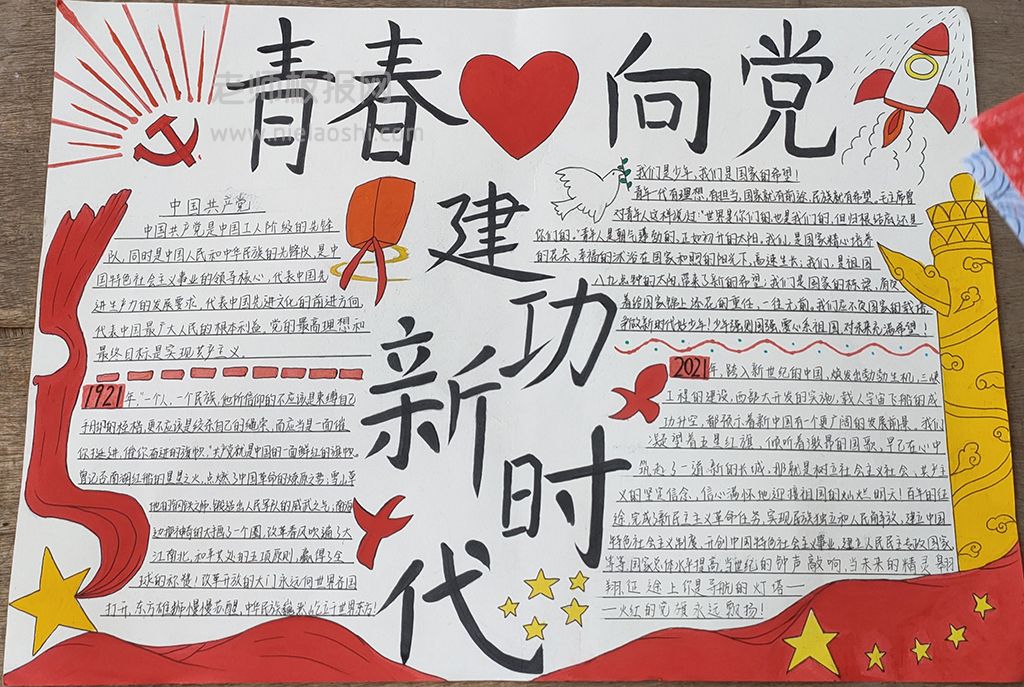 青春向党
老师板报网
www.nielaoshi.com
建功
新时代
中国共产党
中国共产党是中国工人阶级的先锋
队,同时是中国人民和中华民族的先锋队,是中
国特色社会主义事业的领导核心,代表中国先
进生产力的发展要求,代表中国先进文化的前进方向,
代表中国最广大人民的根本利益。党的最高理想和
最终目标是实现共产主义。
1921年,"一个人,一个民族,他所信仰的不应该是束缚自己
手脚的桎梏,更不应该是绞杀自己的绳索,而应当是一面催
你挺进,催你奋进的旗帜。"共产党就是中国的一面鲜红的旗帜。
曾记否南湖红船的星星之火,点燃了中国革命的燎原之势;雪山草
地
边
江南北,和平共处的五项原则,赢得了全
球的称赞!改革开放的大门永远向世界各国
打开,东方雄狮慢慢苏醒,中华民族巍然屹立于世界东方!
我们是少年,我们是国家的希望!
青年一代有理想,有担当,国家就有前途,民族就有希望,毛主席曾
对青年人这样说过:"世界是你们的,也是我们的,但归根结底还是
你们的。"青年人是朝气蓬勃的,正如初升的太阳。我们,是国家精心培养
的花朵,幸福的沐浴在国家和煦的阳光下,高速生长;我们,是祖国
八九点钟的太阳,带来了新的希望;我们是国家的栋梁,肩负
着给国家锦上添花的重任,一往无前。我们应不负国家的栽培,
争做新时代好少年!少年强则国强,爱心系祖国,对未来充满希望!
2021年,踏入新世纪的中国,焕发出勃勃生机,三峡
工程的建设,西部大开发的实施,载人宇宙飞船的成
功升空,都预示着新中国有个更广阔的发展前景,我们
凝望着五星红旗,倾听着激昂的国歌,早已在心中
筑起了一道新的长城,那就是树立社会主义社会、共产主
义的坚定信念,信心满怀地迎接祖国的灿烂明天!百年的征
途,完成了新民主主义革命任务,实现民族独立和人民解放,建立中国
特色社会主义制度,开创中国特色社会主义事业,建立人民民主专政国家
等等,国家总体水平提高,当世纪的钟声敲响,当未来的精灵翱
翔,征途上你是导航的灯塔——
—火红的党旗永远飘扬!